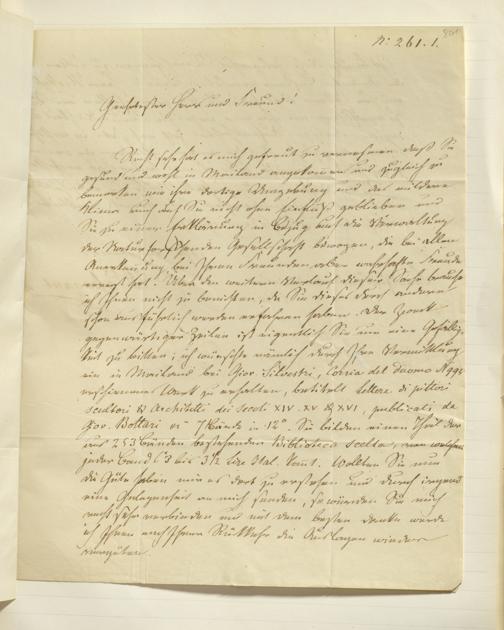 N: 261.1.
Geehrtester Herr und Freund!
Recht sehr hat es mich gefreut zu vernehmen daß Sie
gesund und wohl in Mailand angekommen und zugleich zu
bemerken wie ihre dortige Umgebung und das mildere
Klima auch auf Sie nicht ohne Einfluß geblieben und
Sie zu einer Erklärung in Bezug auf die Verwaltung
der Naturforschenden Gesellschaft bewogen, die bei allen
Ihren Freunden
erregt hat. Über den weitern Verlauf dieser Sache brauche
ich Ihnen nicht zu berichten, da Sie dieses durch andere
schon ausführlich werden erfahren haben. Der Zweck
gegenwärtiger Zeilen ist eigentlich Sie um eine Gefällig-
keit zu bitten; ich wünschte nämlich durch Ihre Vermittlung
ein in Mailand bei Giov. Silvestri, Corsia del Duomo N 994
erschienenes Werk zu erhalten, betitelt Lettere di pittori
scultori & architetti dei Secoli XIV. XV & XVI, publicati da
Gov. Bottari 7 Bände in 12°. Sie bilden einen Theil der
aus 253 Bänden bestehenden Biblioteca scelta, von welcher
jeder Band 3 bis 3½ Lire Ital. kömt. Wollten Sie nun
die Güte haben mir es dort zu erstehen und durch irgend
eine Gelegenheit an mich senden, so würden Sie mich
recht sehr verbinden und mit dem besten Danke werde
ich Ihnen nach Ihrer Rückkehr die Auslagen wieder
vergüten.